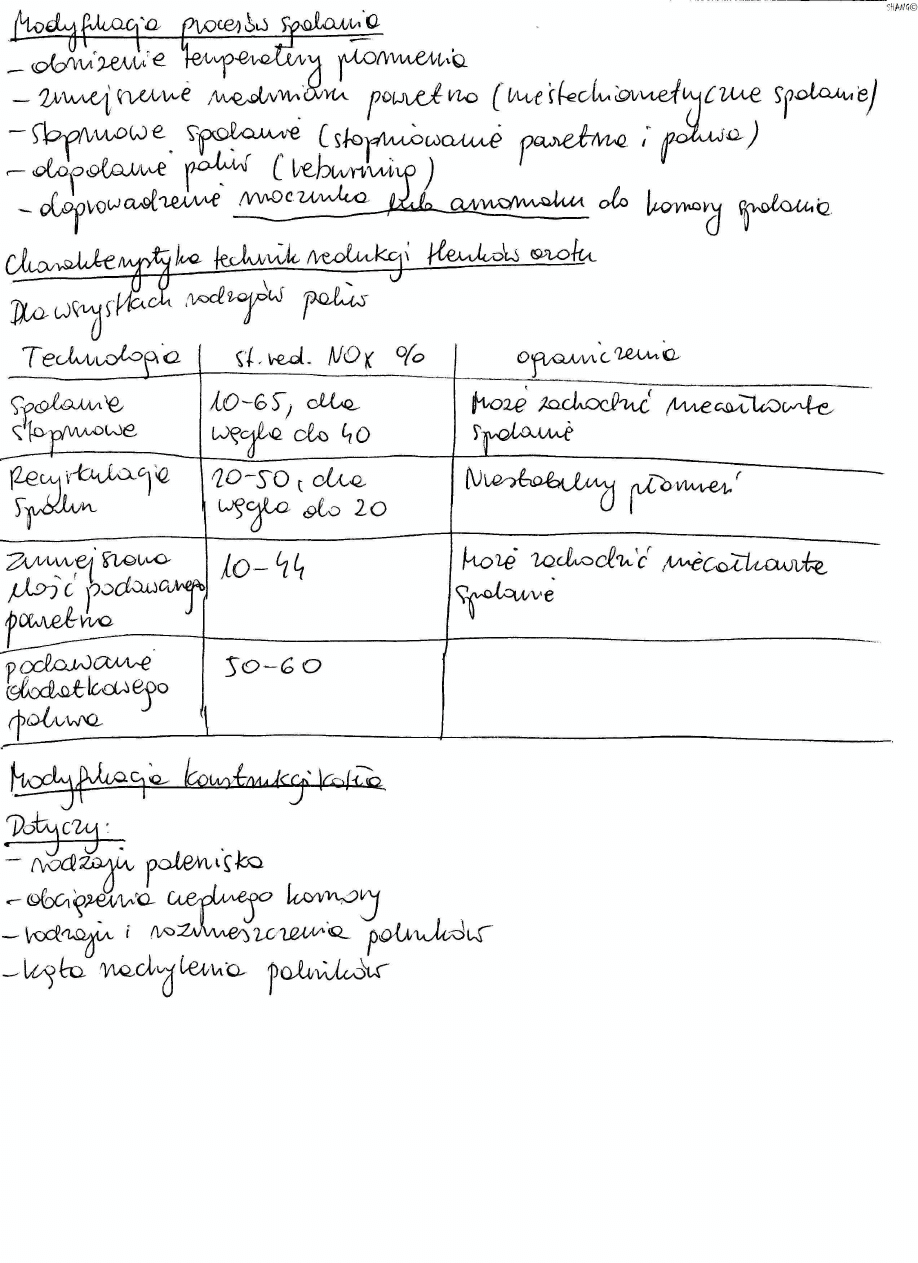 SHANG©
Modyfikacja procesów spalania
- obniżenie temperatury płomienia
- zmniejszenie nadmiaru powietrza (niestechiometryczne spalanie)
- stopniowe spalanie (stopniowanie powietrza i paliwa)
- dopalanie paliw (reburning)
- doprowadzenie mocznika lub amoniaku do komory spalania
Charakterystyka technik redukcji tlenków azotu
Dla wszystkich rodzajów paliw
Technologia | st. red. NOx % | ograniczenia
Spalanie stopniowe | 10-65, dla węgla do 40 | Może zachodzić niecałkowite spalanie
Recyrkulacja spalin | 20-50, dla węgla do 20 | Niestabilny płomień
Zmniejszona ilość podawanego powietrza | 10-44 | Może zachodzić niecałkowite spalanie
podawanie dodatkowego paliwa | 50-60
Modyfikacja konstrukcji kotła
Dotyczy:
- rodzaju paleniska
- obciążenia cieplnego komory
- rodzaju i rozmieszczenia palników
- kąta nachylenia palników